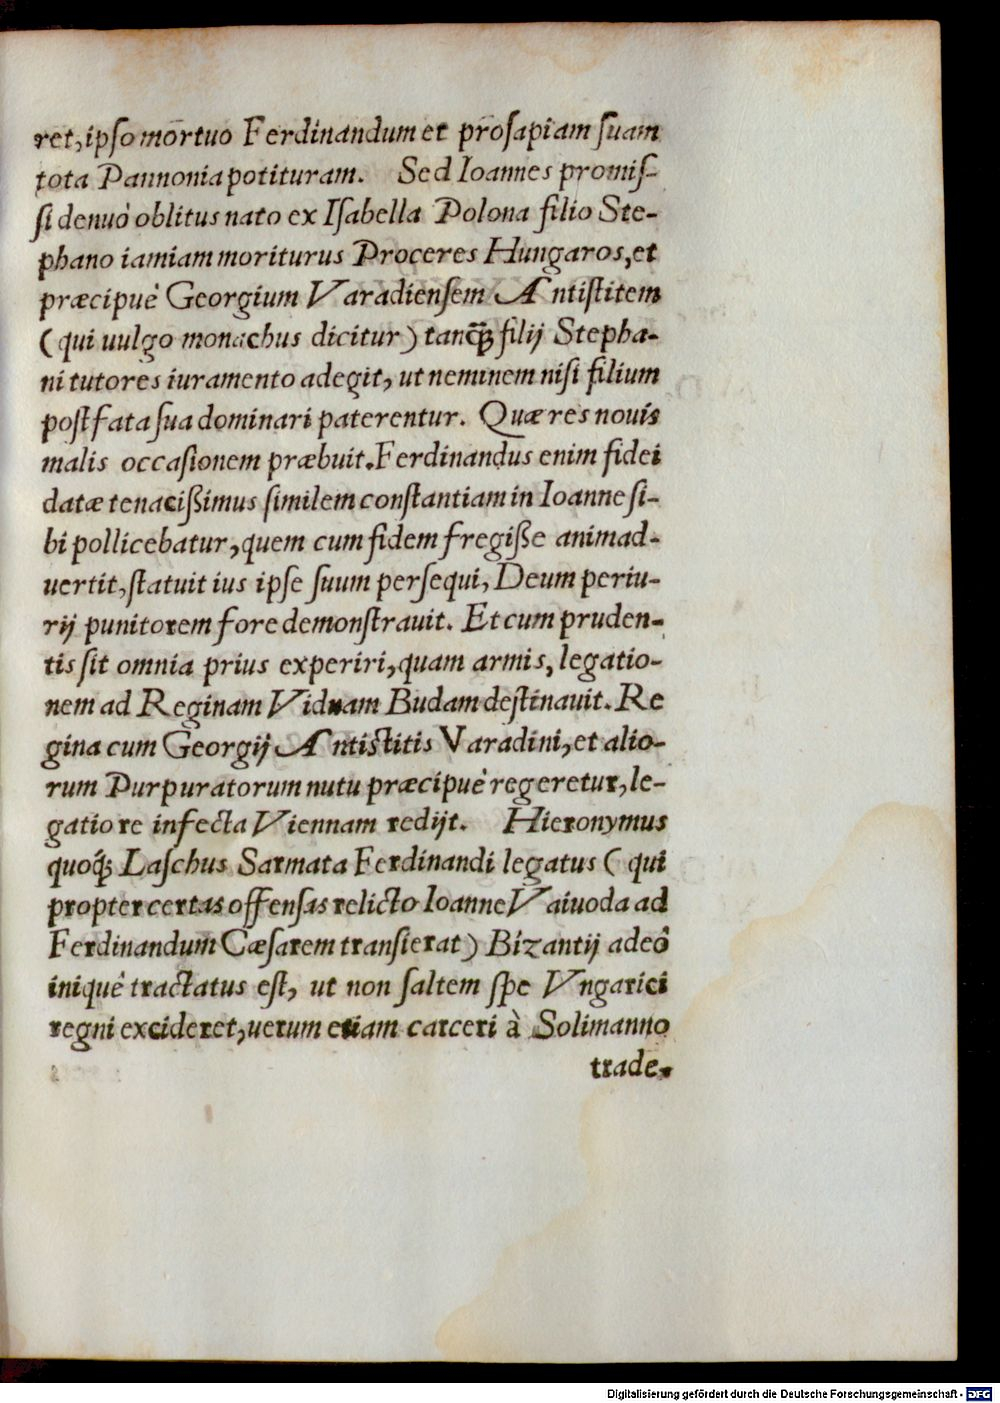 ret, ipſo mortuo Ferdinandum et proſapiam ſuam
tota Pannonia potituram. Sed Ioannes promiſ-
ſi denuò oblitus nato ex Iſabella Polona filio Ste-
phano iamiam moriturus Proceres Hungaros, et
præcipuè Georgium Varadienſem Antiſtitem
(qui uulgo monachus dicitur) tanq̃ꝫ filij Stepha-
ni tutores iuramento adegit, ut neminem niſi filium
poſt fata ſua dominari paterentur. Quæ res nouis
malis occaſionem præbuit. Ferdinandus enim fidei
datæ tenacißimus ſimilem conſtantiam in Ioanne ſi-
bi pollicebatur, quem cum fidem fregiße animad-
uertit, ſtatuit ius ipſe ſuum persequi, Deum periu-
rij punitorem fore demonſtrauit. Et cum pruden-
tis ſit omnia prius experiri, quam armis, legatio-
nem ad Reginam Viduam Budam deſtinauit. Re
gina cum Georgij Antistitis Varadini, et alio-
rum Purpuratorum nutu præcipuè regeretur, le-
gatio re infecta Viennam redijt. Hieronymus
quoq́ꝫ Laſchus Sarmata Ferdinandi legatus (qui
propter certas offenſas relicto Ioanne Vaiuoda ad
Ferdinandum Cæſarem transierat) Bizantij adeò
iniquè tractatus eſt, ut non ſaltem ſpe Vngarici
regni excideret, uerum etiam carceri à Solimanno
trade-
Digitalisierung gefördert durch die Deutsche Forschungsgemeinschaft - DFG